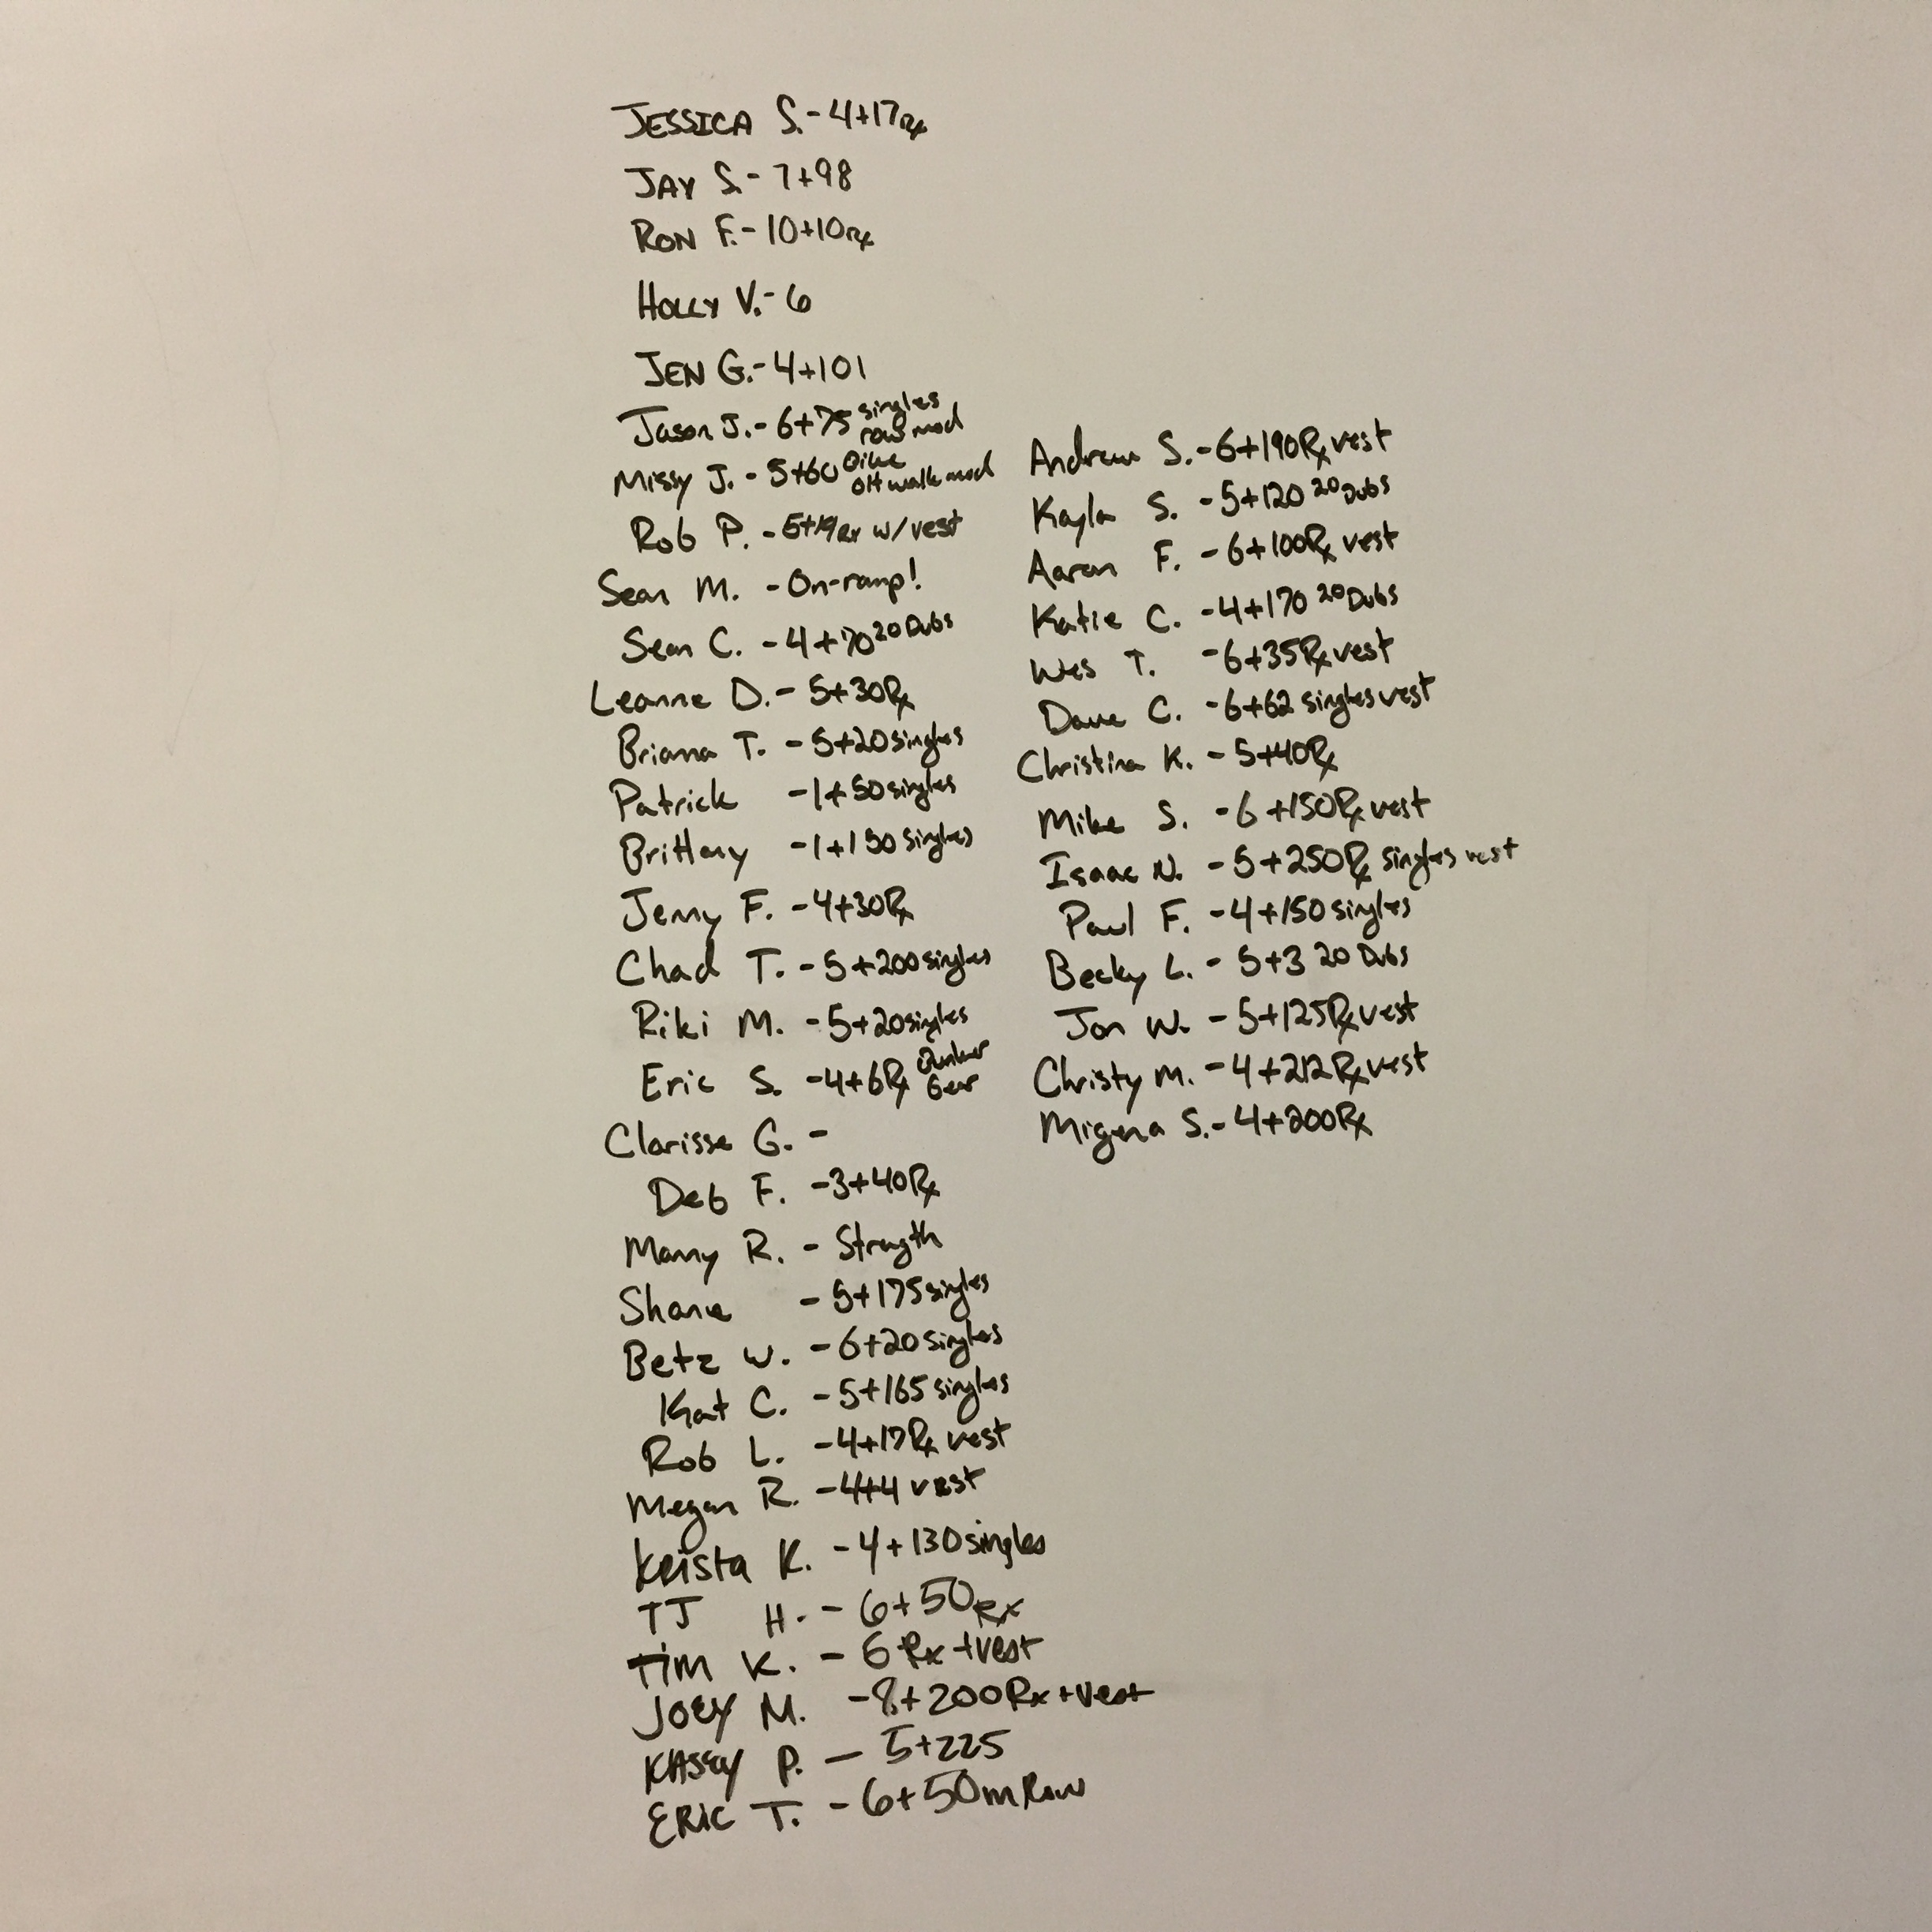 JESSICA S. - 4+17rx
JAY S. - 7+98
RON F. - 10+10rx
HOLLY V. - 6
JEN G. - 4+101
Jason J. - 6+75 singles row mod
Missy J. - 5+60 OH walk mod
Rob P. - 5+19Rx w/vest
Sean M. - On-ramp!
Sean C. - 4+70 20 Dubs
Leanne D. - 5+30Rx
Briana T. - 5+20 singles
Patrick - 1+50 singles
Brittany - 1+150 singles
Jenny F. - 4+30Rx
Chad T. - 5+200 singles
Riki M. - 5+20 singles
Eric S. - 4+6Rx Bunker Gear
Clarisse G. -
Deb F. - 3+40Rx
Manny R. - Strength
Shane - 5+175 singles
Betz W. - 6+20 singles
Kat C. - 5+165 singles
Rob L. - 4+17Rx vest
Megan R. - 4+4 vest
Krista K. - 4+130 singles
TJ H. - 6+50Rx
Tim K. - 6 Rx +vest
JOEY M. - 8+200Rx+vest
KASEY P. - 5+225
ERIC T. - 6+50m Row
Andrew S. - 6+190Rx vest
Kayla S. - 5+120 20 Dubs
Aaron F. - 6+100Rx vest
Katie C. - 4+170 20 Dubs
Wes T. - 6+35Rx vest
Dave C. - 6+62 singles vest
Christina K. - 5+40Rx
Mike S. - 6+150Rx vest
Isaac N. - 5+250Rx singles vest
Paul F. - 4+150 singles
Becky L. - 5+3 20 Dubs
Jon W. - 5+125Rx vest
Christy M. - 4+212Rx vest
Migena S. - 4+200Rx